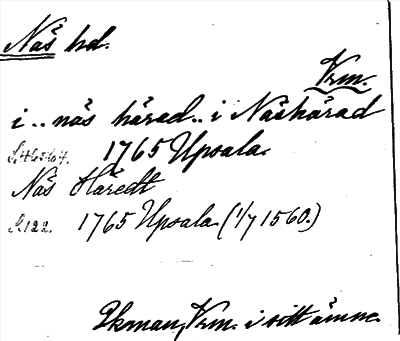 Näs hd.
Vrm.
i .. näs härad .. i Näshärad
1765 Upsala.
Näs Häredt
S. 122. 1765 Upsala (1/7 1560.)
Ekman, Vrm. i sitt ämne.